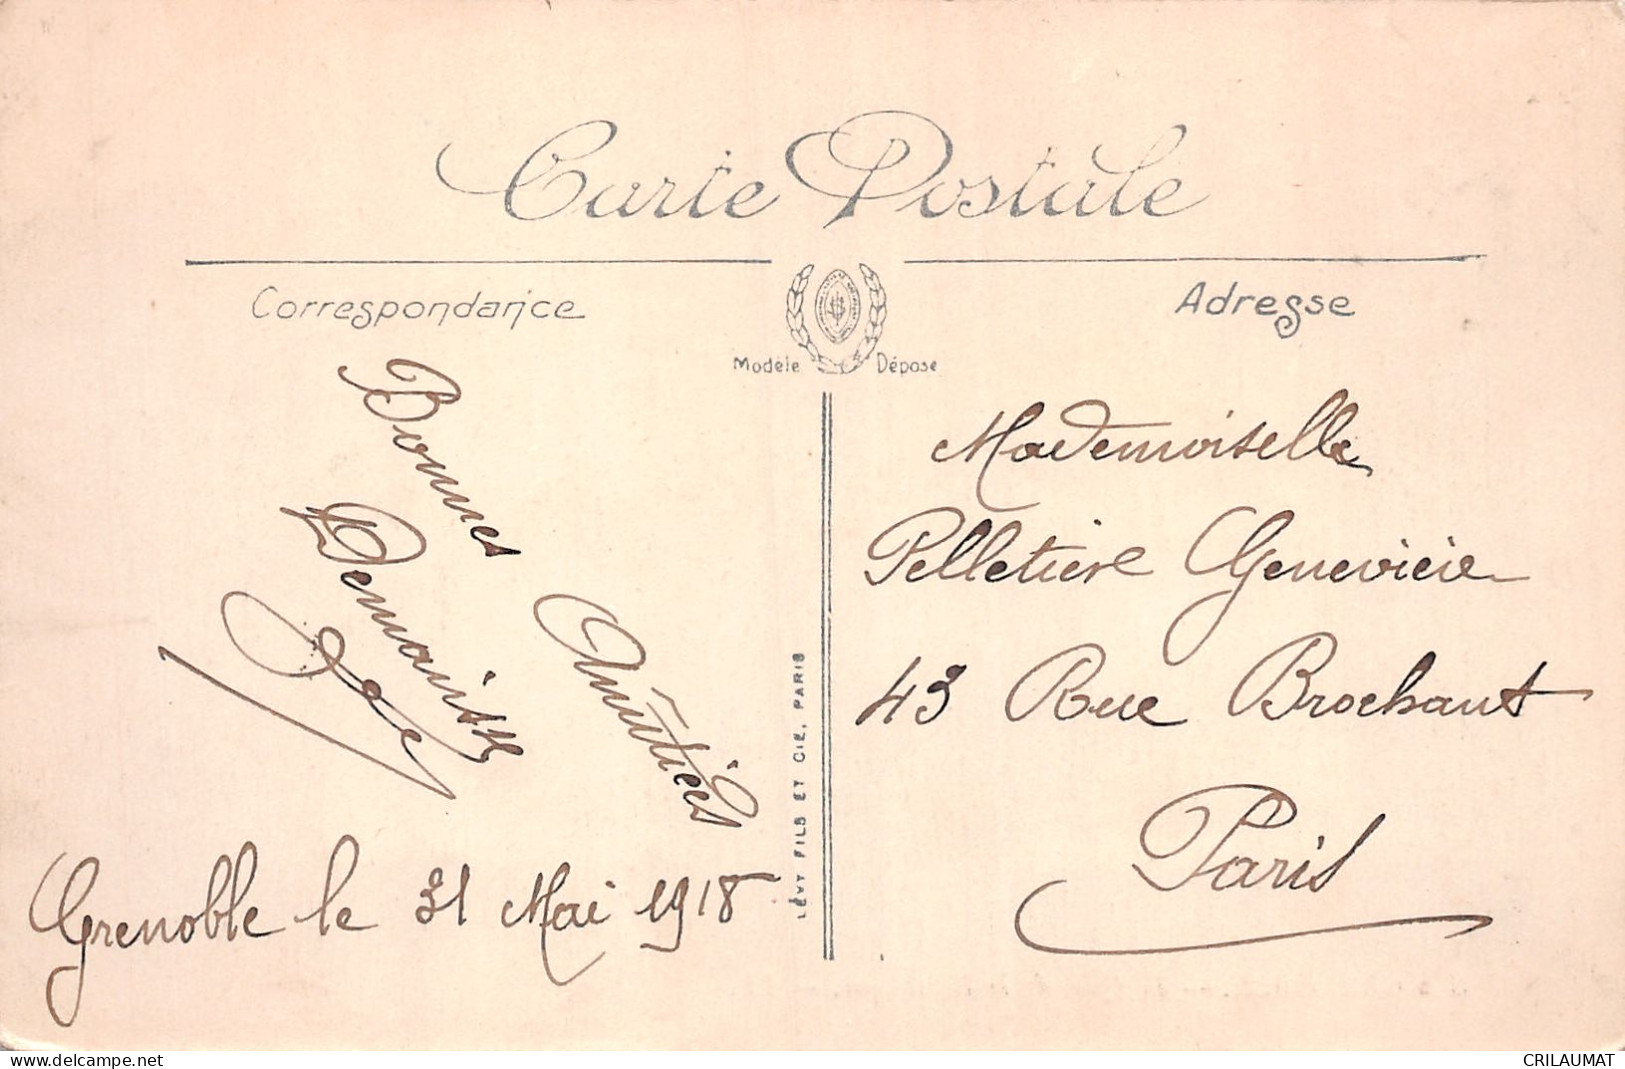 Carte Postale
Correspondance
Adresse
Modèle Déposé
Bonnes Amitiées
Grenoble le 31 Mai 1918
LÉVY FILS ET CIE, PARIS
Mademoiselle
Pelletier Genevieve
43 Rue Brochant
Paris
www.delcampe.net
CRILAUMAT